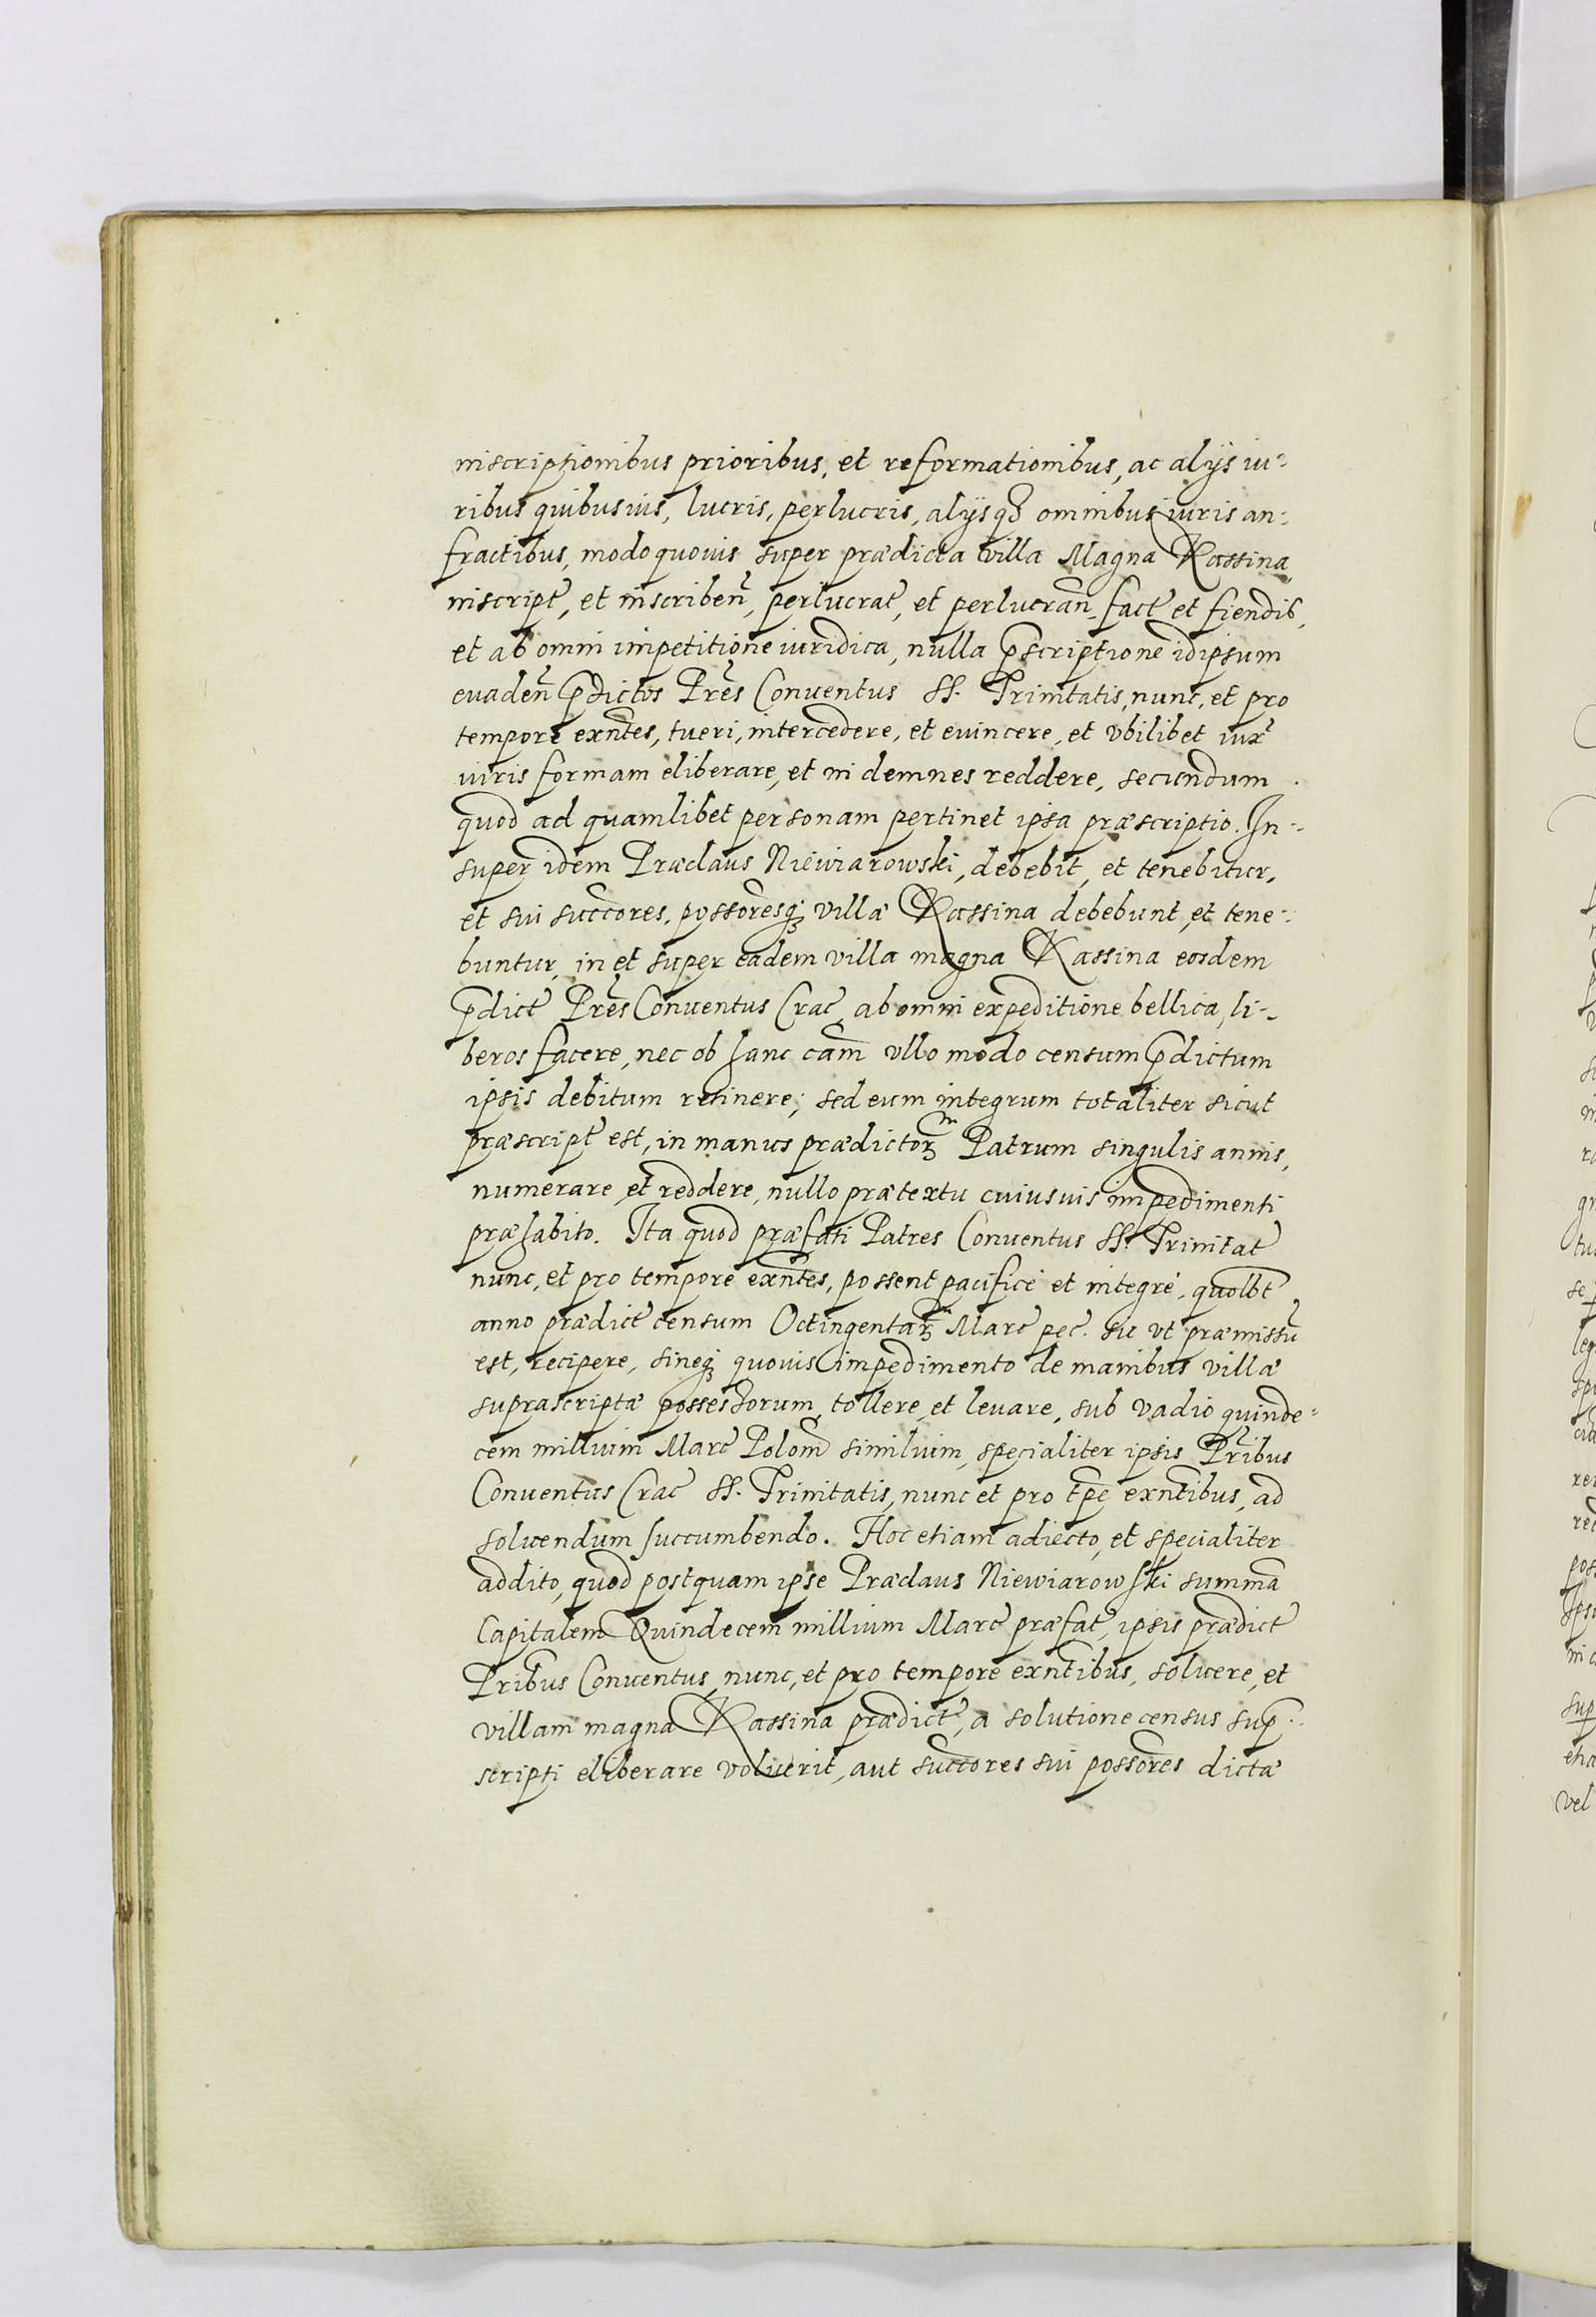 inscriptionibus prioribus, et reformationibus, ac alijs iu-
ribus quibusuis, lucris, perlucris, alijsq3 omnibus iuris an-
fractibus, modoquouis super prædicta villa Magna Kassina
inscript, et inscriben, perlucrat, et perlucran, fact et fiendis,
et ab omni impetitione iuridica, nulla p̃scriptione idipsum
euaden p̃dictos Pr̃es Conuentus SS. Trinitatis, nunc, et pro
tempore exñtes, tueri, intercedere, et euincere, et vbilibet iux̃
iuris formam eliberare, et indemnes reddere, secundum
quod ad quamlibet personam pertinet ipsa præscriptio. In-
super idem Præclaus Niewiarowski, debebit, et tenebitur,
et sui succ̃ores, poss̃oresq3 villæ Kassina debebunt, et tene-
buntur, in et super eadem villa magna Kassina eosdem
p̃dict Pr̃es Conuentus Crac, ab omni expeditione bellica, li-
beros facere, nec ob hanc cãm vllo modo censum p̃dictum
ipsis debitum retinere; sed eum integrum totaliter sicut
præscript est, in manus prædictor̃ᵐ Patrum singulis annis,
numerare et reddere, nullo prætextu cuiusuis impedimenti
præhabito. Ita quod præfati Patres Conuentus SS. Trinitat
nunc, et pro tempore exñtes, possent pacificè et integrè, quolb̃t
anno prædict censum Octingentar̃ᵐ Marc pec. sic vt præmissũ
est, recipere, sineq3 quouis impedimento de manibus villæ
suprascriptæ possessorum, tollere, et leuare, sub vadio quinde-
cem millium Marc Polom similium, specialiter ipsis Pr̃ibus
Conuentus Crac SS. Trinitatis, nunc et pro tp̃e exñtibus, ad
soluendum succumbendo. Hoc etiam adiecto, et specialiter
addito, quod postquam ipse Præclaus Niewiarowski summã
Capitalem Quindecem millium Marc præfat, ipsis prædict
Pr̃ibus Conuentus, nunc, et pro tempore exñtibus, soluere, et
villam magnã Kassina prædict, a solutione census sup̃-
scripti eliberare voluerit, aut succ̃ores sui poss̃ores dictæ